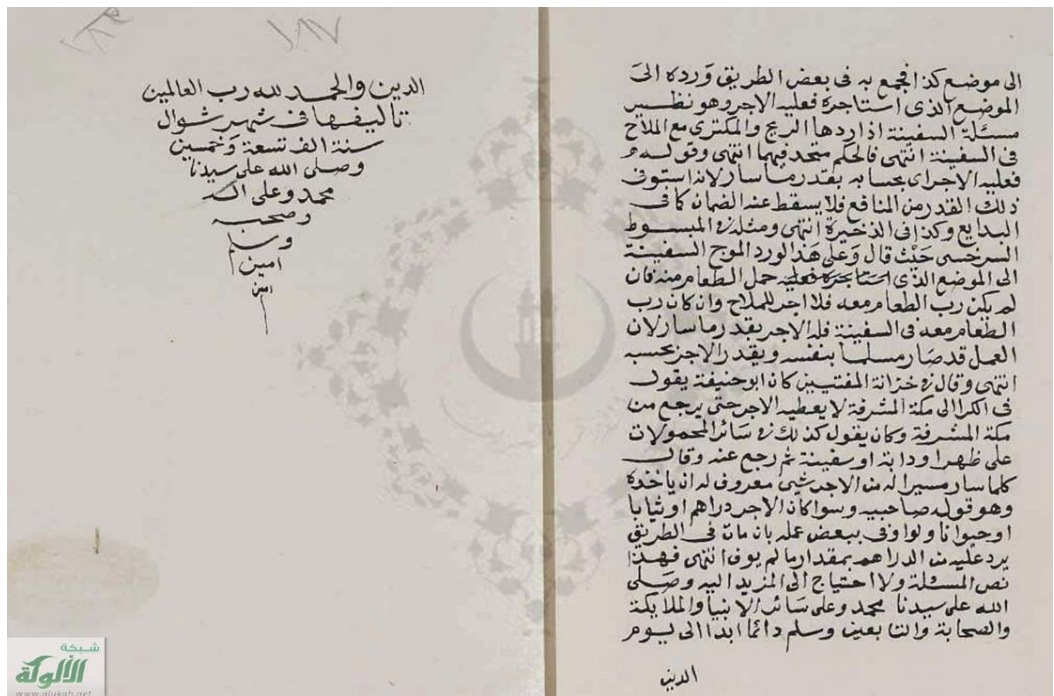 الى موضع كذا فجمع به فى بعض الطريق ورده الى
الموضع الذى استاجره فعليه الاجر وهو نظير
مسئلة السفينة اذا ردها الريح والمكترى مع الملاح
فى السفينة انتهى فالحكم متحد فيهما انتهى وقوله
فعليه الاجر اى بحسابه بقدر ما سار لانه استوفى
ذلك القدر من المنافع فلا يسقط عنه الضمان كما فى
البدايع وكذا فى الذخيرة انتهى ومثله فى المبسوط
السرخسى حيث قال وعلى هذا لو رد الموج السفينة
الى الموضع الذى استاجره فعليه حمل الطعام منه فان
لم يكن رب الطعام معه فلا اجر للملاح وان كان رب
الطعام معه فى السفينة فله الاجر بقدر ما سار لان
العمل قد صار مسلما بنفسه ويقدر الاجر بحسبه
انتهى وقال فى خزانة المفتيين كان ابو حنيفة يقول
فى الكرا الى مكة المشرفة لا يعطيه الاجر حتى يرجع من
مكة المشرفة وكان يقول كذلك فى سائر المحمولات
على ظهر او دابة او سفينة ثم رجع عنه وقال
كلما سار مسيرا له من الاجر شيى معروف له ان ياخذه
وهو قول صاحبيه وسوا كان الاجر دراهم او ثيابا
او حيوانا ولو اوفى ببعض عمله بان مات فى الطريق
يرد عليه من الدراهم بمقدار ما لم يوف انتهى فهذا
نص المسئلة ولا احتياج الى المزيد اليه وصلى
الله على سيدنا محمد وعلى سائر الانبيا والملايكة
والصحابة والتابعين وسلم دائما ابدا الى يوم
الدين
١٨٧
الدين والحمد لله رب العالمين
تاليفها فى شهر شوال
سنة الف تسعة وخمسين
وصلى الله على سيدنا
محمد وعلى اله
وصحبه
وسلم
امين
امين
شبكة
الألوكة
www.alukah.net